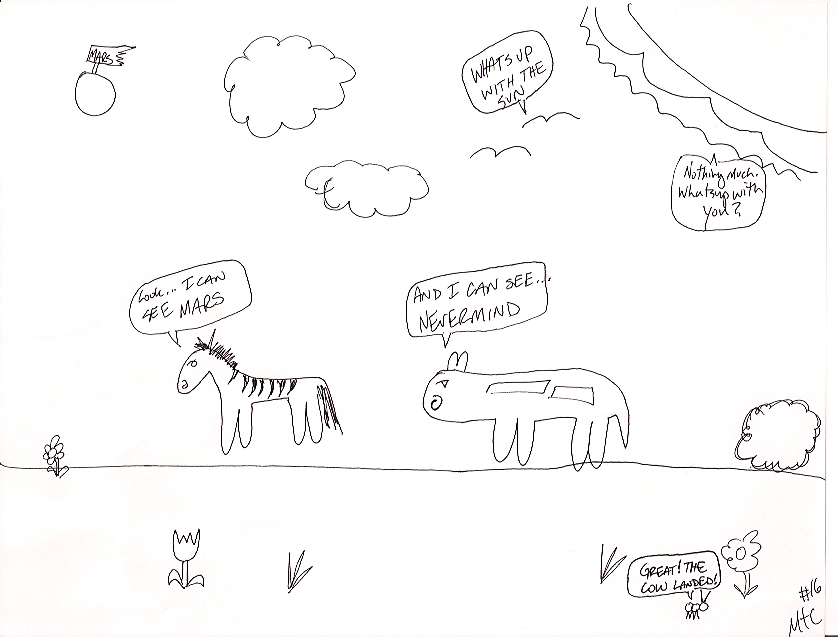 MARS
WHATS UP
WITH THE
SUN
Nothing much.
Whatsup with
you?
Look... I CAN
SEE MARS
AND I CAN SEE...
NEVERMIND
GREAT! THE
COW LANDED!
#16
MtC